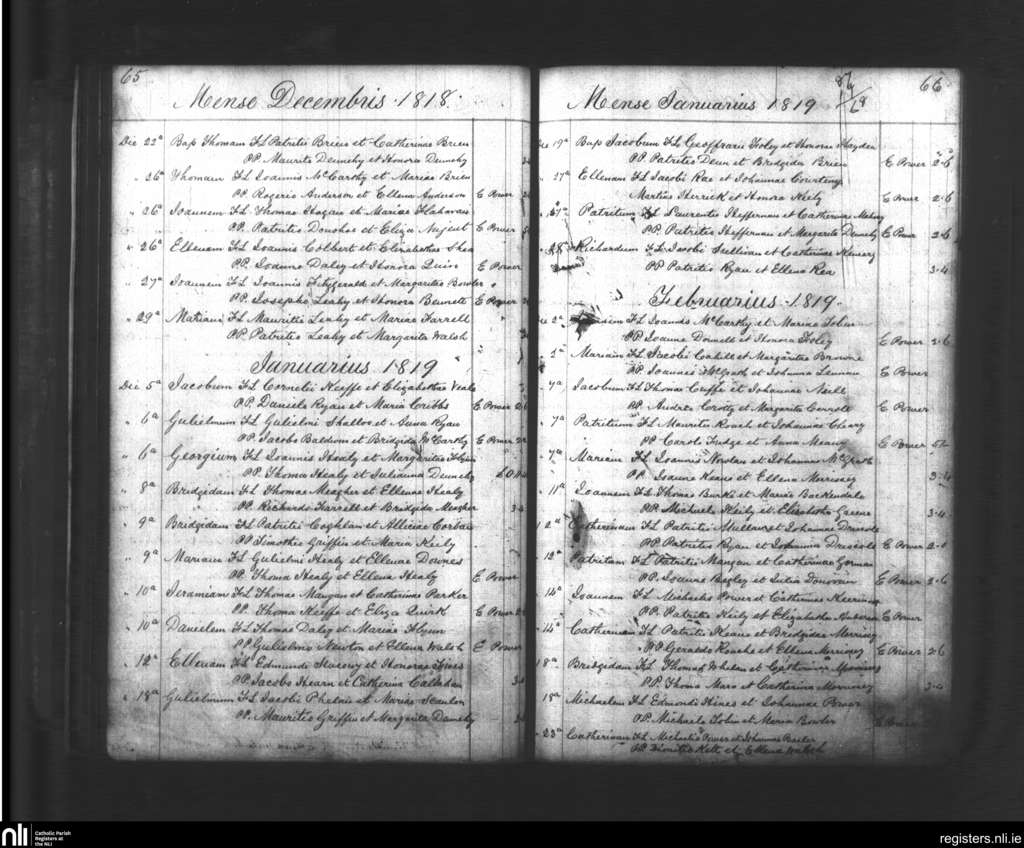 65
Mense Decembris 1818.
Die 22ª Bap Thomam FL Patritii Brien et Catherinae Brien
PP. Mauritio Dunnehy et Honora Dunnehy
" 26ª Thomam FL Ioannis McCarthy et Mariae Brien
PP. Rogerio Anderson et Ellena Anderson E Power
" 26ª Ioannem FL Thomae Hogan et Mariae Flahavan
PP. Patritio Donohoe et Eliza Nugent E Power
" 26ª Ellenam FL Ioannis Colbert et Elizabethae Shea
PP. Ioanne Daley et Honora Quin E Power
" 27ª Ioannem FL Ioannis Fitzgerald et Margaritae Bowler
PP. Iosepho Leahy et Honora Bennett E Power
" 29ª FL Mauritii Leahy et Mariae Farrell
PP. Patritio Leahy et Margarita Walsh
Ianuarius 1819
Die 5ª Iacobum FL Cornelii Keiffe et Elizabethae Veale
PP. Daniele Ryan et Maria Cribbs E Power
" 6ª Gulielmum FL Gulielmi Shalloe et Anna Ryan
PP. Iacobo Baldwin et Bridgida McCarthy E Power
" 6ª Georgium FL Ioannis Healy et Margaritae Flynn
PP. Thoma Healy et Iulianna Dunnehy
" 8ª Bridgidam FL Thomae Meagher et Ellenae Healy
PP. Richardo Farrell et Bridgida Meagher
" 9ª Bridgidam FL Patritii Coghlan et Alliciae Corban
PP Timothio Griffin et Maria Keily
" 9ª Mariam FL Gulielmi Healy et Ellenae Downes
PP. Thoma Healy et Ellena Healy E Power
" 10ª Ieramiam FL Thomae Mangan et Catherinae Parker
PP. Thoma Keeffe et Eliza Quirk E Power
" 10ª Danielem FL Thomae Daley et Mariae Flynn
PP Gulielmo Newton et Ellena Walsh E Power
" 12ª Ellenam FL Edmundi et Honorae Hines
PP. Iacobo Hearn et Catherina Callahan
" 18ª Gulielmum FL Iacobi Phelan et Mariae Scanlon
PP. Mauritio Griffin et Margarita Dunnehy
66
Mense Ianuarius 1819
Die 19ª Bap Iacobum FL Geoffrari Foley et Honorae Hayden
PP. Patritio Deun et Bridgida Brien E Power 2-6
" 27ª Ellenam FL Iacobi Rae et Iohannae Courteny
Martino Herrick et Honora Keily E Power 2-6
" 27ª Patritium FL Laurentii Heffernan et Catherinae Mahony
PP. Patritio Heffernan et Margarita Dunnehy E Power 2-6
28ª Richardum FL Iacobi Sullivan et Catherinae
PP Patritio Ryan et Ellena Rea 3-4
Februarius 1819.
Die 2ª FL Ioannis McCarthy et Mariae Tobin
PP. Ioanne Donnell et Honora Foley E Power 2-6
" 2ª Mariam FL Iacobi Cahill et Margaritae Browne
PP. Ioannis McGrath et Iohanna Lennan E Power
" 7ª Iacobum FL Thomae Cuffe et Iohannae Neill
PP. Andrea Crotty et Margarita Carroll E Power
" 7ª Patritium FL Mauritii Roach et Iohannae Cleary
PP Carolo Fudge et Anna Meany E Power
" 7ª Mariam FL Ioannis Nowlan et Iohannae McGrath
PP. Ioanne Keane et Ellena Morrissey 3-4
" 11ª Ioannem FL Thomae Burke et Mariae Backendale
PP. Michaele Keily et Elizabetha Greene 3-4
12ª Catherinam FL Patritii Mullane et Iohannae Driscole
PP. Patritio Ryan et Iohanna Driscole E Power
12ª Patritium FL Patritii Mangan et Catherinae Gorman
PP. Ioanne Begley et Iulia Donovan E Power 2-6
" 14ª Ioannem FL Michaelis Power et Catherinae
PP. Patritio Keily et Elizabetha Anderson E Power
" 14ª Catherinam FL Patritii Keane et Bridgidae Morrissy
PP Geraldo Roache et Ellena Morrissey E Power 2-6
18ª Bridgidam FL Thomae Whelan et Catherinae
PP. Thoma Mara et Catherina Morrissey 3-4
18ª Michaelem FL Edmundi Hines et Iohannae Power
PP. Michaele Tobin et Maria Bowler E Power
" 23ª Catherinam FL Michaelis Power et Iohannae
PP. et Ellena Walsh
nli Catholic Parish
Registers at
the NLI
registers.nli.ie